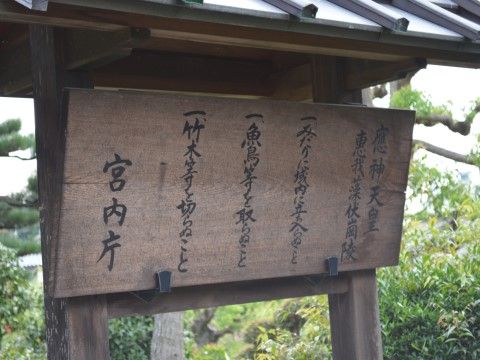 應神天皇
惠我藻伏岡陵
一、みだりに域内に立入らぬこと
一、魚鳥等を取らぬこと
一、竹木等を切らぬこと
宮内庁